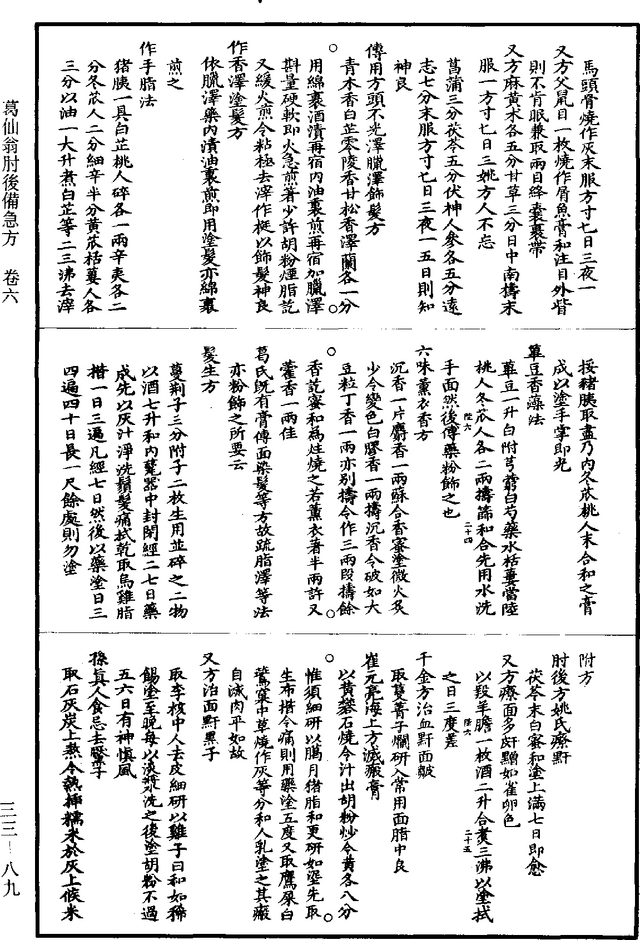 馬頭骨燒作灰末服方寸匕日三夜一
又方父鼠目一枚燒作屑魚膏和注目外眥
則不肯眠兼取兩目絳囊裹帶
又方麻黃朮各五分甘草三分日中南擣末
服一方寸匕日三姚方人不忘
菖蒲三分茯苓五分伏神人參各五分遠
志七分末服方寸匕日三夜一五日則知
神良
傅用方頭不光澤臘澤飾髮方
青木香白芷零陵香甘松香澤蘭各一分
用綿裹酒漬再宿內油裏煎再宿加臘澤
斟量硬軟即火急煎著少許胡粉煙脂訖
又緩火煎令粘極去滓作梃以飾髮神良
作香澤塗髮方
依臘澤藥內漬油裏煎即用塗髮亦綿裹
煎之
作手脂法
猪胰一具白芷桃人碎各一兩辛夷各二
分冬苽人二分細辛半分黃苽栝蔞人各
三分以油一大升煮白芷等二三沸去滓
挼猪胰取盡乃內冬苽桃人末合和之膏
成以塗手掌即光
蓽豆香藻法
蓽豆一升白附芎藭白芍藥水栝蔞當陸
桃人冬苽人各二兩擣篩和合先用水洗
手面然後傅藥粉飾之也
六味薰衣香方
沉香一片麝香一兩蘇合香蜜塗微火炙
少令變色白膠香一兩擣沉香令破如大
豆粒丁香一兩亦別擣令作三兩段擣餘
香訖蜜和為炷燒之若薰衣著半兩許又
藿香一兩佳
葛氏既有膏傅面染髮等方故疏脂澤等法
亦粉飾之所要云
髮生方
蔓荆子三分附子二枚生用並碎之二物
以酒七升和內甆器中封閉經二七日藥
成先以灰汁淨洗鬚髮痛拭乾取烏雞脂
揩一日三遍凡經七日然後以藥塗日三
四遍四十日長一尺餘處則勿塗
附方
肘後方姚氏療䵟
茯苓末白蜜和塗上滿七日即愈
又方療面多䵟䵳如雀卵色
以羖羊膽一枚酒二升合煮三沸以塗拭
之日三度差
千金方治血䵟面皺
取蔓菁子爛研入常用面脂中良
崔元亮海上方滅瘢膏
以黃礬石燒令汁出胡粉炒令黃各八分
惟須細研以臈月猪脂和更研如埿先取
生布揩令痛則用藥塗五度又取鷹屎白
鷰窠中草燒作灰等分和人乳塗之其瘢
自滅肉平如故
又方治面䵟黑子
取李核中人去皮細研以雞子白和如稀
餳塗至晚每以淡漿洗之後塗胡粉不過
五六日有神慎風
孫真人食忌去黶子
取石灰炭上熬令熱揷糯米於灰上候米
葛仙翁肘後備急方　卷六
三三—八九